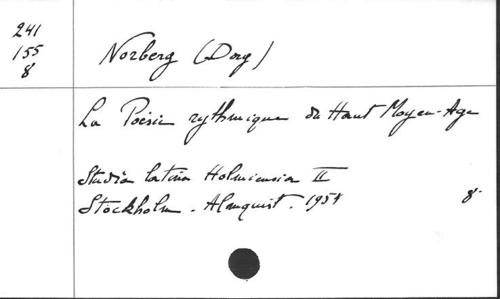 241
155
8
Norberg (Dag)
La Poésie rythmique du Haut Moyen-Age
Studia latina Holmiensia II
Stockholm. Almquist. 1954 8°